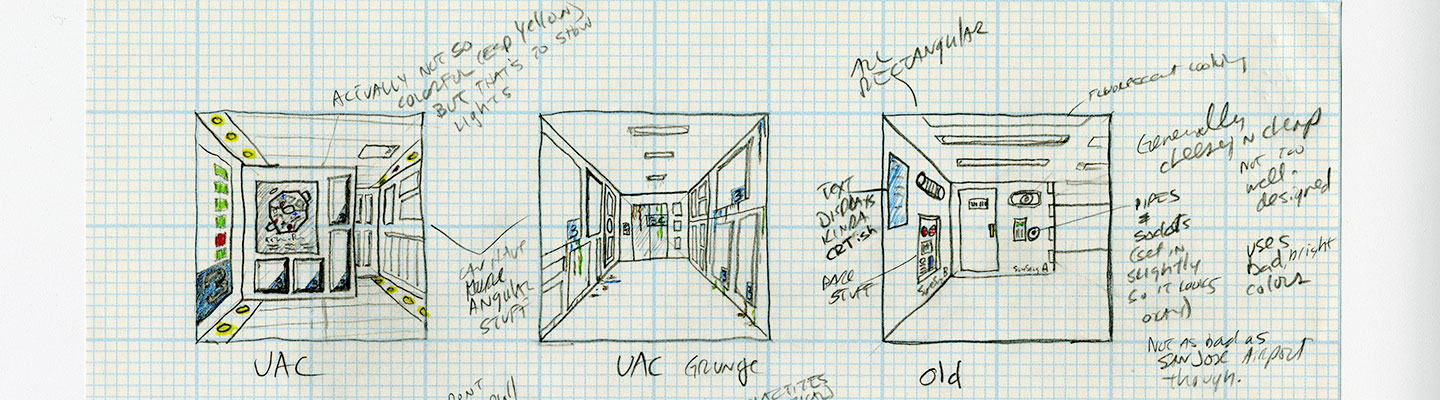 ACTUALLY NOT SO
COLORFUL (ESP YELLOW)
BUT THAT'S TO SHOW
LIGHTS
ALL
RECTANGULAR
FLUORESCENT LOOKING
Generally
cheesy n cheap
NOT TOO
well-
designed
TEXT
DISPLAYS
KINDA
CRTish
PIPES
&
Sockets
(set in
slightly
so it looks
okay)
USES
bad, bright
colours
CAN HAVE
MORE
ANGULAR
STUFF
3
3
DARK
STUFF
Survey B
Survey A
NOT AS bad as
SAN JOSE AIRPORT
though.
UAC
UAC GRUNGE
Old